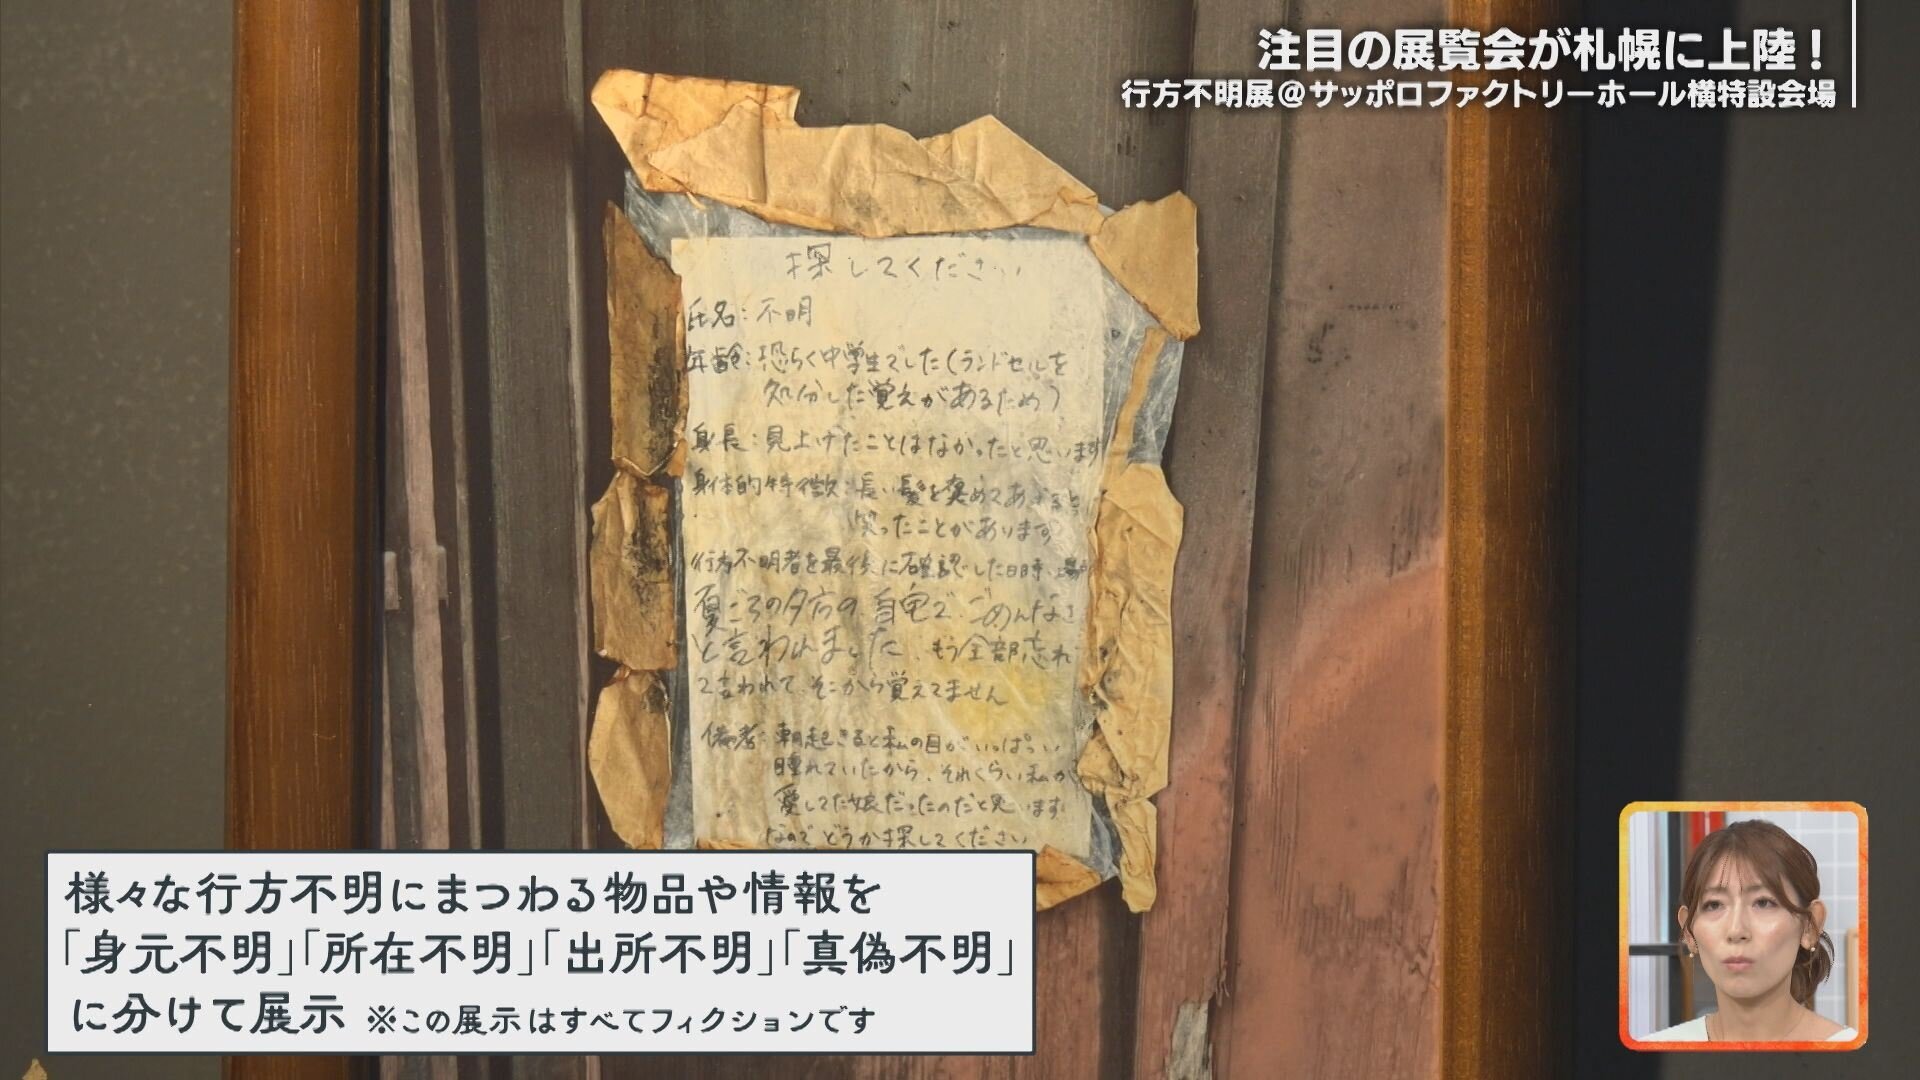 注目の展覧会が札幌に上陸！
行方不明展＠サッポロファクトリーホール横特設会場
探してください
氏名：不明
年齢：恐らく中学生でした（ランドセルを
処分した覚えがあるため）
身長：見上げたことはなかったと思います
身体的特徴：長い髪を褒めてあげると
笑ったことがあります
行方不明者を最後に確認した日時、場
夏ごろの夕方の自宅で、ごめんなさ
と言われました、もう全部忘れ
て言われて、そこから覚えてません
備考：朝起きると私の目がいっぱい
腫れていたから、それくらい私が
愛してた娘だったのだと思います
なので、どうか探してください
様々な行方不明にまつわる物品や情報を
「身元不明」「所在不明」「出所不明」「真偽不明」
に分けて展示 ※この展示はすべてフィクションです